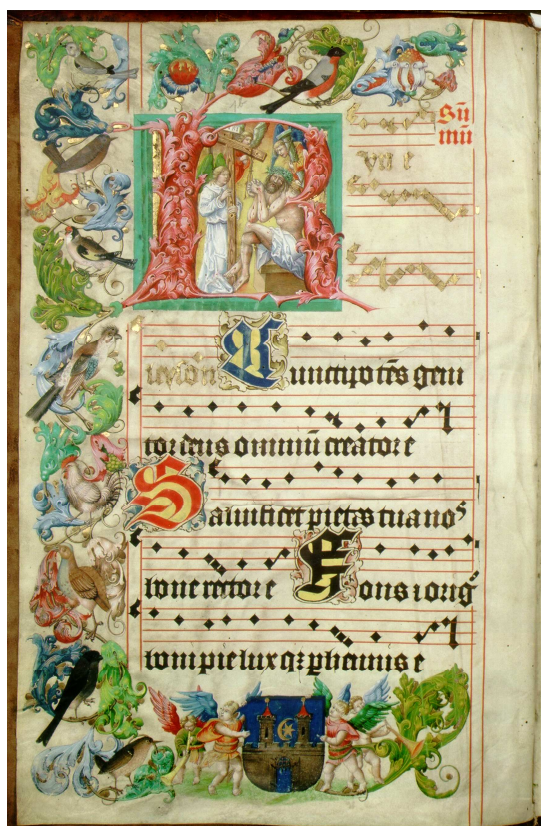 Sū
mū
K yri e
leyson Cunctipotēs geni
tor deus omniū creator e
Saluificet pietas tua nos
bone rector e Fons i orig
boni pie lux qꝫ phennis e